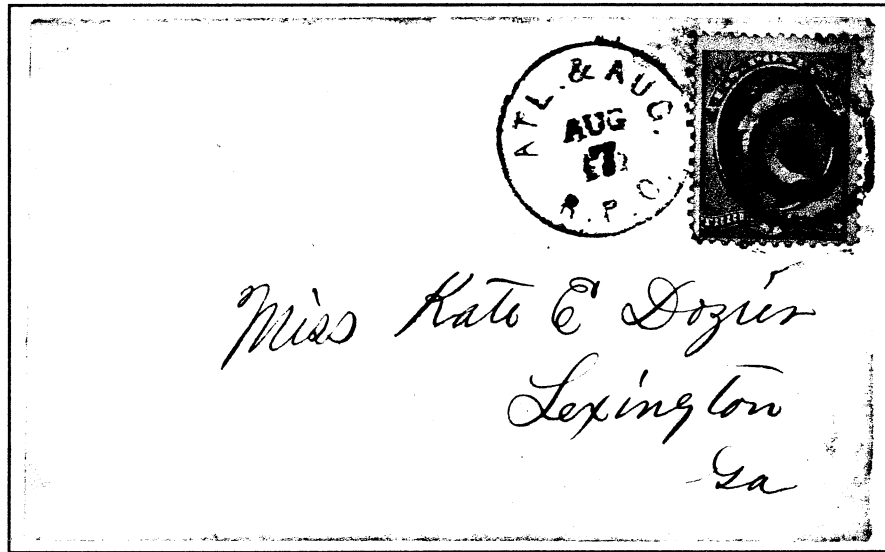 ATL. & AUG.
AUG
7
R.P.O.
Miss Kate E Dozier
Lexington
Ga